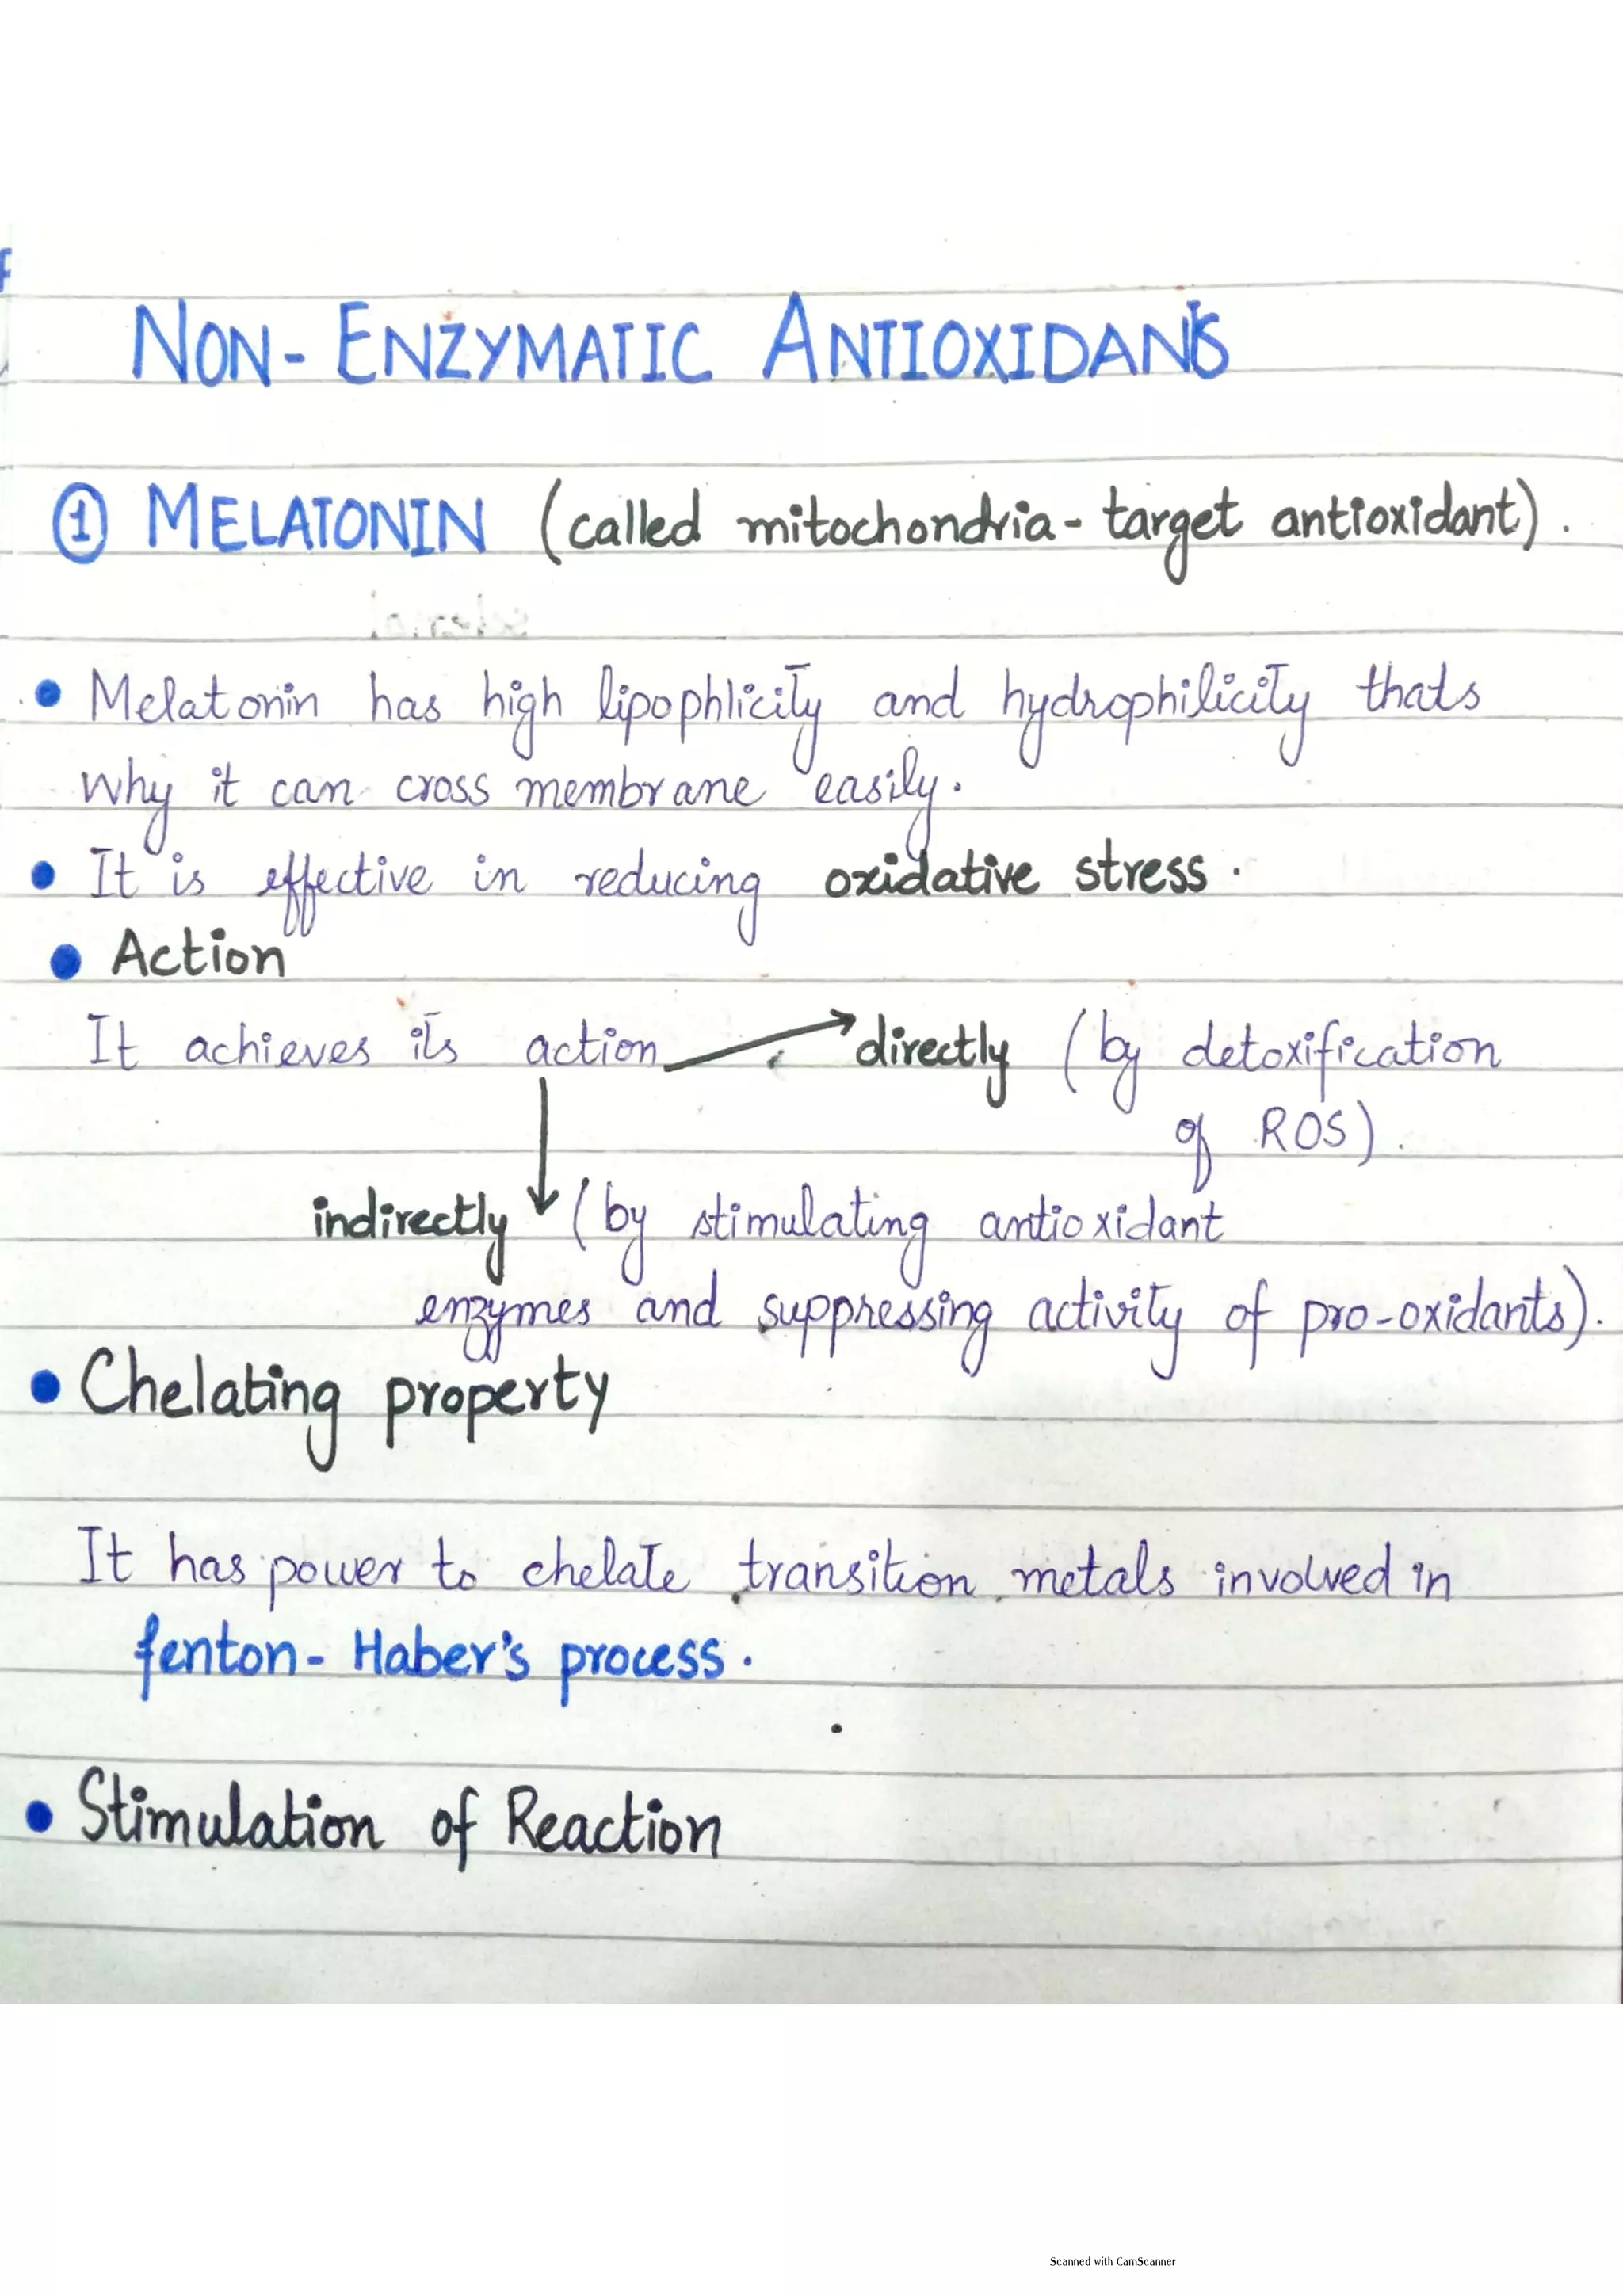 NON-ENZYMATIC ANTIOXIDANTS
① MELATONIN (called mitochondria-target antioxidant).
• Melatonin has high lipophlicity and hydrophilicity thats
why it can cross membrane easily.
• It is effective in reducing oxidative stress.
• Action
It achieves its action → directly (by detoxification
of ROS).
indirectly ↓ (by stimulating antioxidant
enzymes and suppressing activity of pro-oxidants).
• Chelating property
It has power to chelate transition metals involved in
fenton-Haber's process.
• Stimulation of Reaction
Scanned with CamScanner